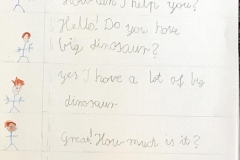 How can I help you?
Hello! Do you have
big dinosaur?
yes I have a lot of big
dinosaur
Great! How much is it?